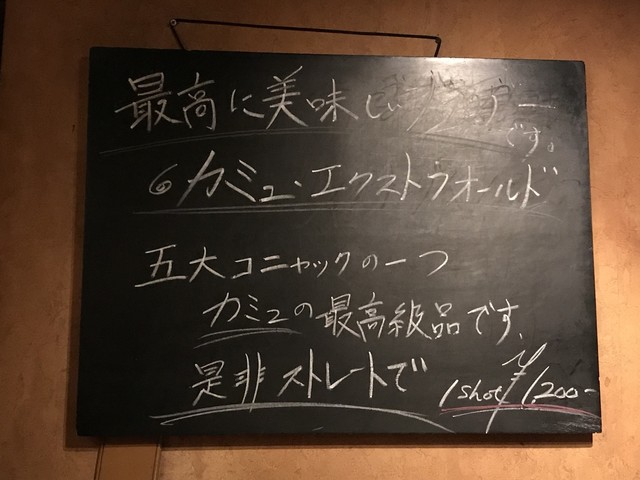 最高に美味しいブランデー
です。
◎カミュ・エクストラオールド
五大コニャックの一つ
カミュの最高級品です。
是非ストレートで
1shot ¥1,200-